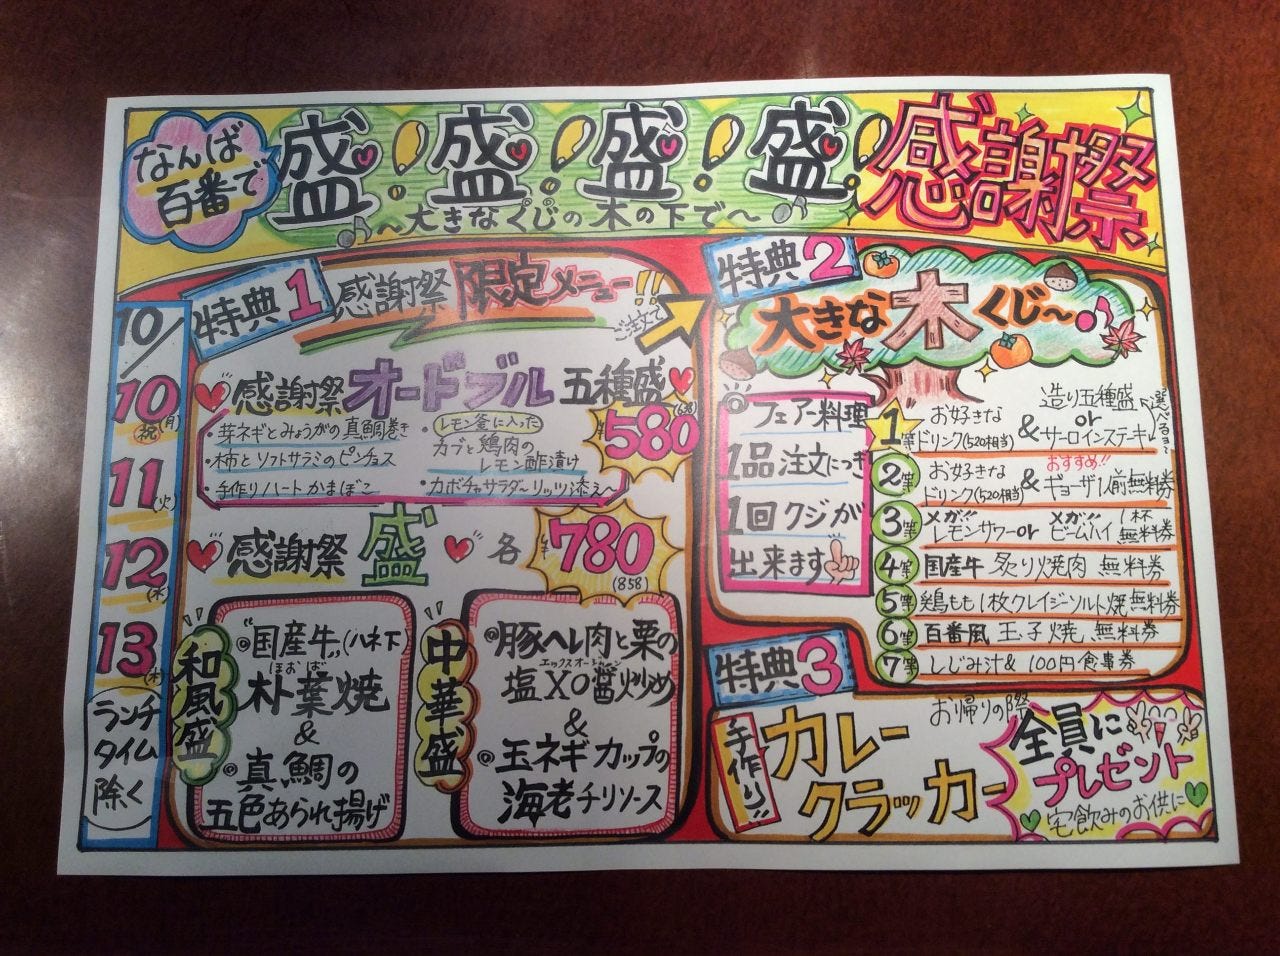 なんば
百番で
盛!盛!盛!盛!感謝祭
～大きなくじの木の下で～
10/
10(月)
祝
11(火)
12(水)
13(木)
ランチ
タイム
除く
特典1
感謝祭限定メニュー!!
ご注文で
感謝祭オードブル五種盛
¥580
・芽ネギとみょうがの真鯛巻き
・柿とソフトサラミのピンチョス
・手作りハートかまぼこ
・レモン釜に入った
カブと鶏肉の
レモン酢漬け
・カボチャサラダ～リッツ添え～
感謝祭盛 各 ¥780
(858)
和風盛
◎国産牛(ハネ下)
ほおば
朴葉焼
&
◎真鯛の
五色あられ揚げ
中華盛
◎豚ヘレ肉と栗の
エックスオージャン
塩XO醤炒め
&
◎玉ネギカップの
海老チリソース
特典2
大きな木くじ～♪
◎フェアー料理
1品注文につき
1回クジが
出来ます
1等 お好きなドリンク(520相当) & 造り五種盛 or サーロインステーキ
選べるョ
2等 お好きなドリンク(520相当) & おすすめ!! ギョーザ1人前無料券
3等 メガ!!レモンサワーor メガ!!ビームハイ 1杯無料券
4等 国産牛 炙り焼肉 無料券
5等 鶏もも1枚クレイジソルト焼無料券
6等 百番風 玉子焼 無料券
7等 しじみ汁& 100円食事券
特典3
手作り!!
カレー
クラッカー
お帰りの際
全員に
プレゼント
宅飲みのお供に